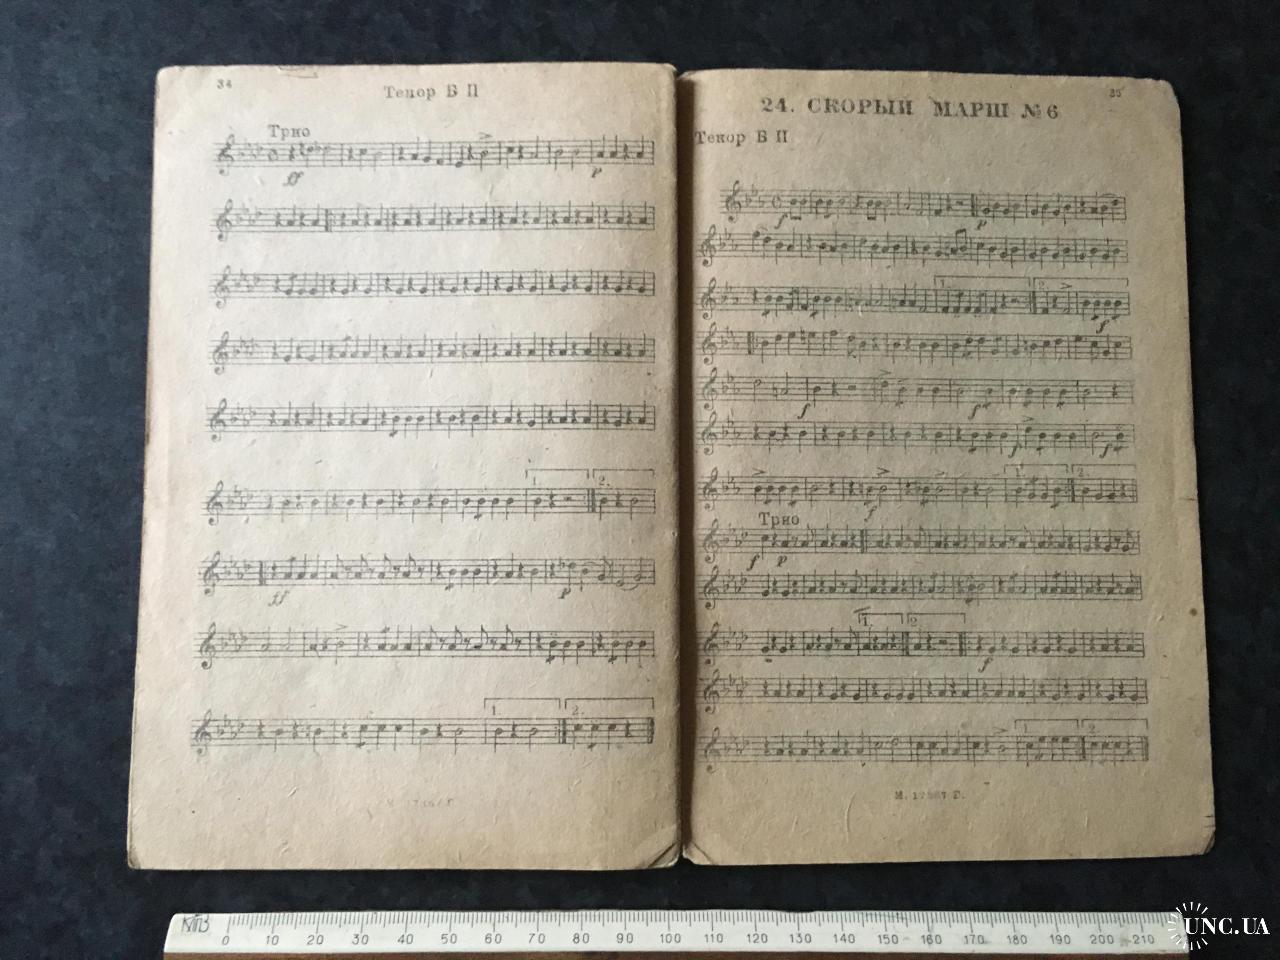 34
Тенор Б II
Трио
ff
p
1.
2.
ff
p
1.
2.
35
24. СКОРЫЙ МАРШ № 6
Тенор Б II
f
p
1.
2.
f
f
f
f
f
1.
2.
f
Трио
f p
1.
2.
f
1.
2.
0 10 20 30 40 50 60 70 80 90 100 110 120 130 140 150 160 170 180 190 200 210
UNC.UA